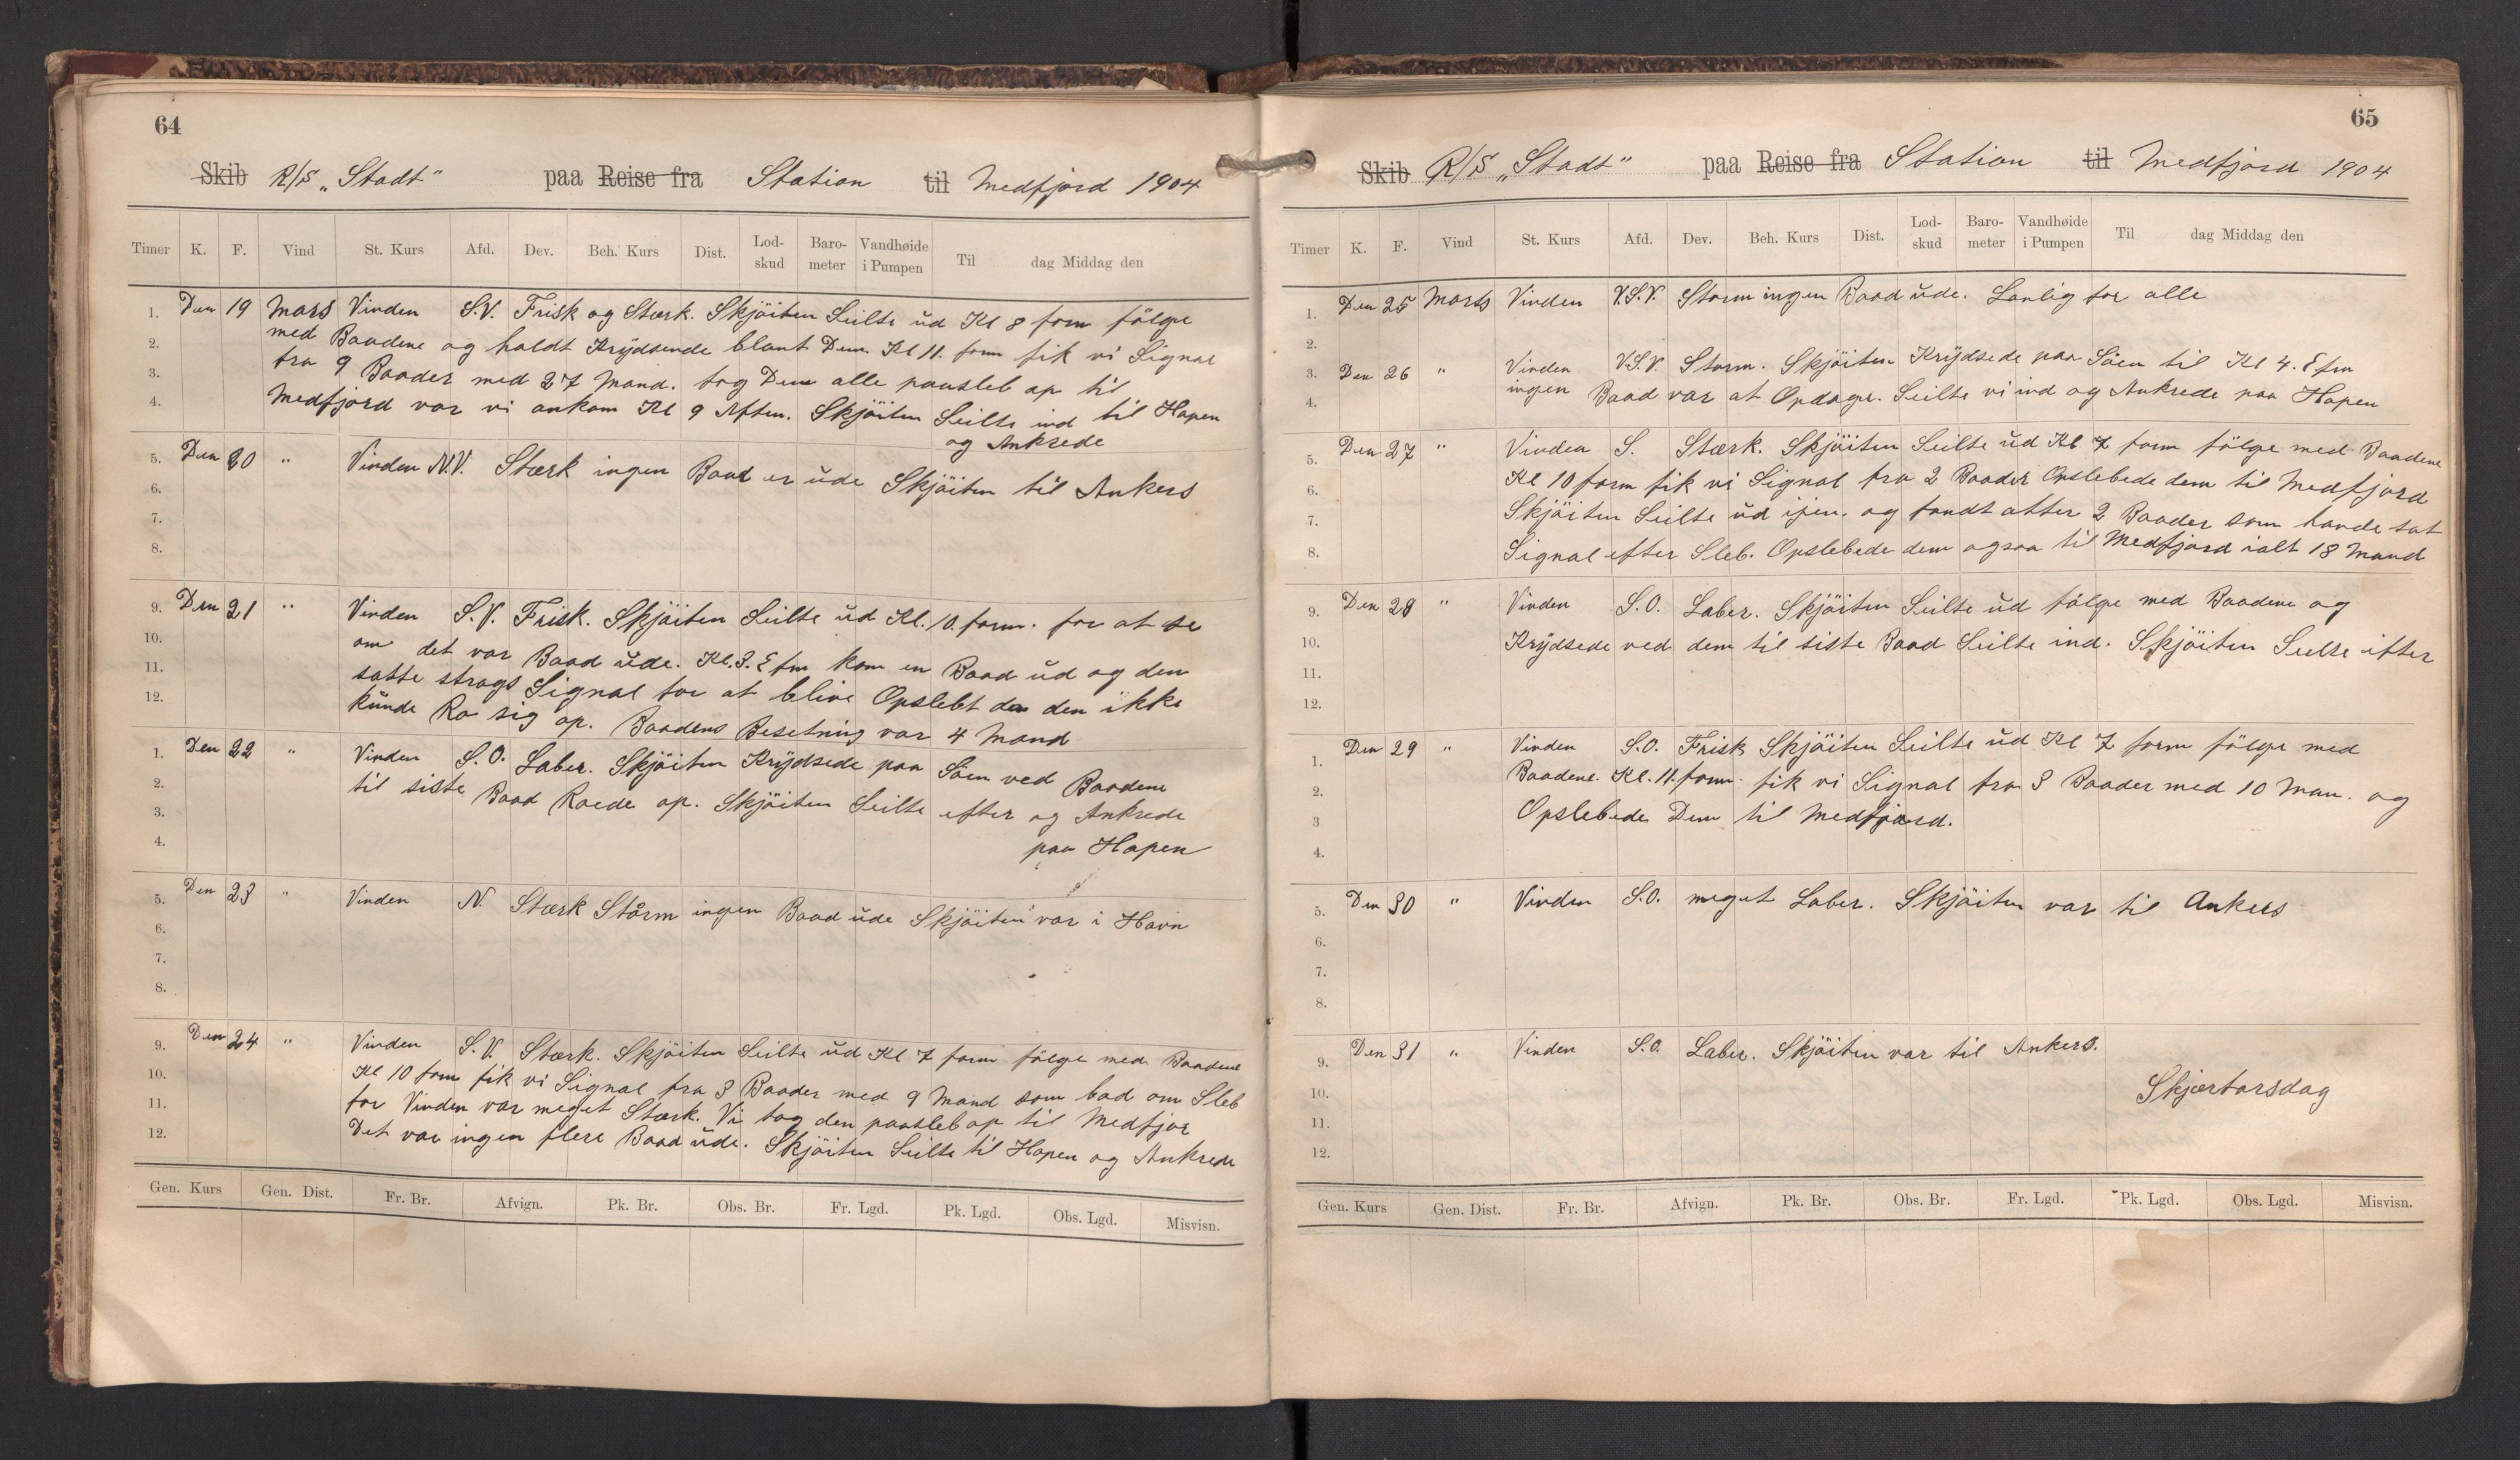 64
Skib R/S „Stadt“ paa Reise fra Station til Medfjord 1904
Timer K. F. Vind St. Kurs Afd. Dev. Beh. Kurs Dist. Lod-skud Baro-meter Vandhøide i Pumpen Til dag Middag den
1. Den 19 Mars Vinden S.V. Frisk og Stærk. Skjöiten Seilte ud Kl 8 form fölge
2. med Baadene og holdt Krydsende blant Dem Kl 11. form fik vi Signal
3. fra 9 Baader med 27 Mand. tog Dem alle paasleb op til
4. Medfjord vor vi ankom Kl 9 Aften. Skjöiten Seilte ind til Hopen
og Ankrede
5. Den 20 " Vinden N.V. Stærk ingen Baad er ude Skjöiten til Ankers
6.
7.
8.
9. Den 21 " Vinden S.V. Frisk. Skjöiten Seilte ud Kl. 10. form. for at se
10. om det var Baad ude. Kl. 3. Efm kom en Baad ud og den
11. satte strags Signal for at blive Opslebt da den ikke
12. kunde Ro sig op. Baadens Besetning var 4 Mand
1. Den 22 " Vinden S.O. Laber. Skjöiten Krydsede paa Söen ved Baadene
2. til siste Baad Roede op. Skjöiten Seilte efter og Ankrede
3. paa Hopen
4.
5. Den 23 " Vinden N. Stærk Storm ingen Baad ude Skjöiten var i Havn
6.
7.
8.
9. Den 24 " Vinden S.V. Stærk. Skjöiten Seilte ud Kl 7 form fölge med Baadene
10. Kl 10 form fik vi Signal fra 3 Baader med 9 Mand som bad om Sleb
11. for Vinden var meget Stærk. Vi tog den paasleb op til Medfjor
12. Det var ingen flere Baad ude. Skjöiten Seilte til Hopen og Ankrede
Gen. Kurs Gen. Dist. Fr. Br. Afvign. Pk. Br. Obs. Br. Fr. Lgd. Pk. Lgd. Obs. Lgd. Misvisn.
65
Skib R/S „Stadt“ paa Reise fra Station til Medfjord 1904
Timer K. F. Vind St. Kurs Afd. Dev. Beh. Kurs Dist. Lod-skud Baro-meter Vandhøide i Pumpen Til dag Middag den
1. Den 25 Marts Vinden V.S.V. Storm ingen Baad ude. Lanlig for alle
2.
3. Den 26 " Vinden V.S.V. Storm. Skjöiten Krydsede paa Söen til Kl 4. Efm
4. ingen Baad var at Opdage. Seilte vi ind og Ankrede paa Hopen
5. Den 27 " Vinden S. Stærk. Skjöiten Seilte ud Kl 7 form fölge med Baadene
6. Kl 10 form fik vi Signal fra 2 Baader Opslebede dem til Medfjord
7. Skjöiten Seilte ud ijen. og fandt atter 2 Baader som havde sat
8. Signal efter Sleb. Opslebede dem ogsaa til Medfjord ialt 18 Mand
9. Den 28 " Vinden S.O. Laber. Skjöiten Seilte ud fölge med Baadene og
10. Krydsede ved dem til siste Baad Seilte ind. Skjöiten Seilte efter
11.
12.
1. Den 29 " Vinden S.O. Frisk Skjöiten Seilte ud Kl 7 form fölge med
2. Baadene. Kl. 11. form. fik vi Signal fra 3 Baader med 10 Man. og
3 Opslebede Dem til Medfjord.
4.
5. Den 30 " Vinden S.O. meget Laber. Skjöiten var til Ankers
6.
7.
8.
9. Den 31 " Vinden S.O. Laber. Skjöiten var til Ankers.
10. Skjærtorsdag
11.
12.
Gen. Kurs Gen. Dist. Fr. Br. Afvign. Pk. Br. Obs. Br. Fr. Lgd. Pk. Lgd. Obs. Lgd. Misvisn.